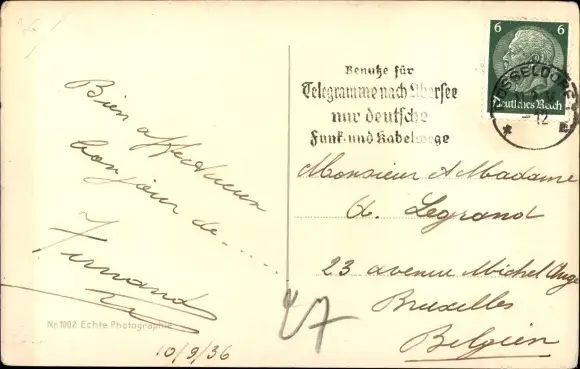 Bien affectueux
bonjour de......
Fernand
Nr. 1002 Echte Photographie
10/9/36
Benutze für
Telegramme nach Übersee
nur deutsche
Funk- und Kabelwege
6 6
Deutsches Reich
DÜSSELDORF
-12
Monsieur & Madame
A. Legrand
23 avenue Michel Ange
Bruxelles
Belgien
27